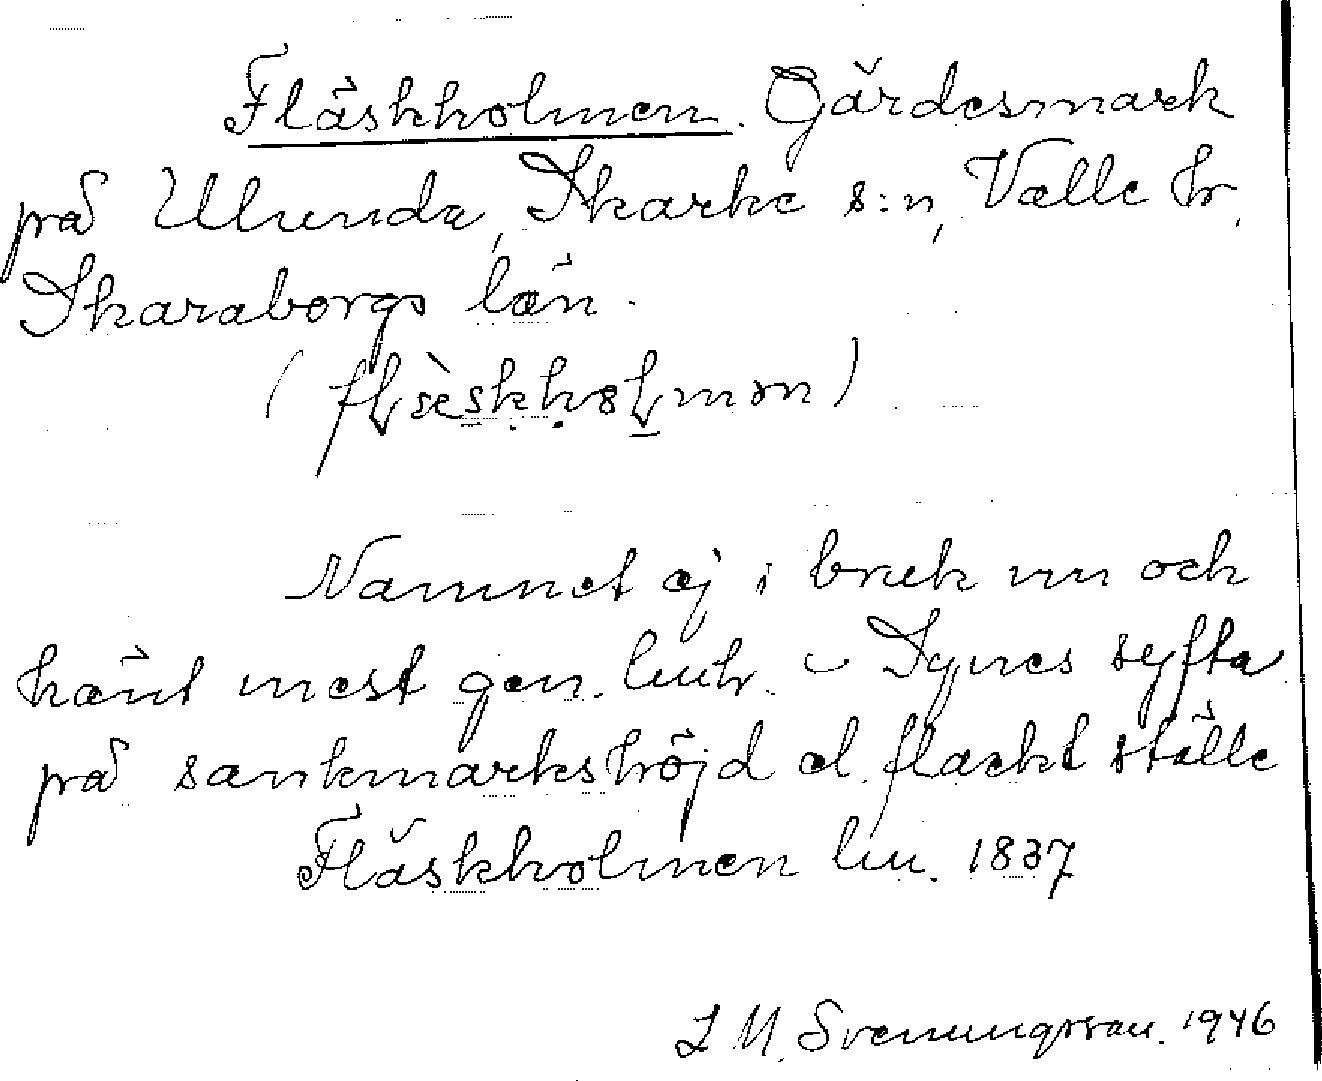 Fläskholmen. Gärdesmark
på Ulunda, Skarke s:n, Valle hr,
Skaraborgs län.
(flæ̀skholmən)
Namnet ej i bruk nu och
känt mest gen. lmhr. – Synes syfta
på sankmarkshöjd el. flackt ställe
Fläskholmen lm. 1837
L M. Svenungsson. 1946